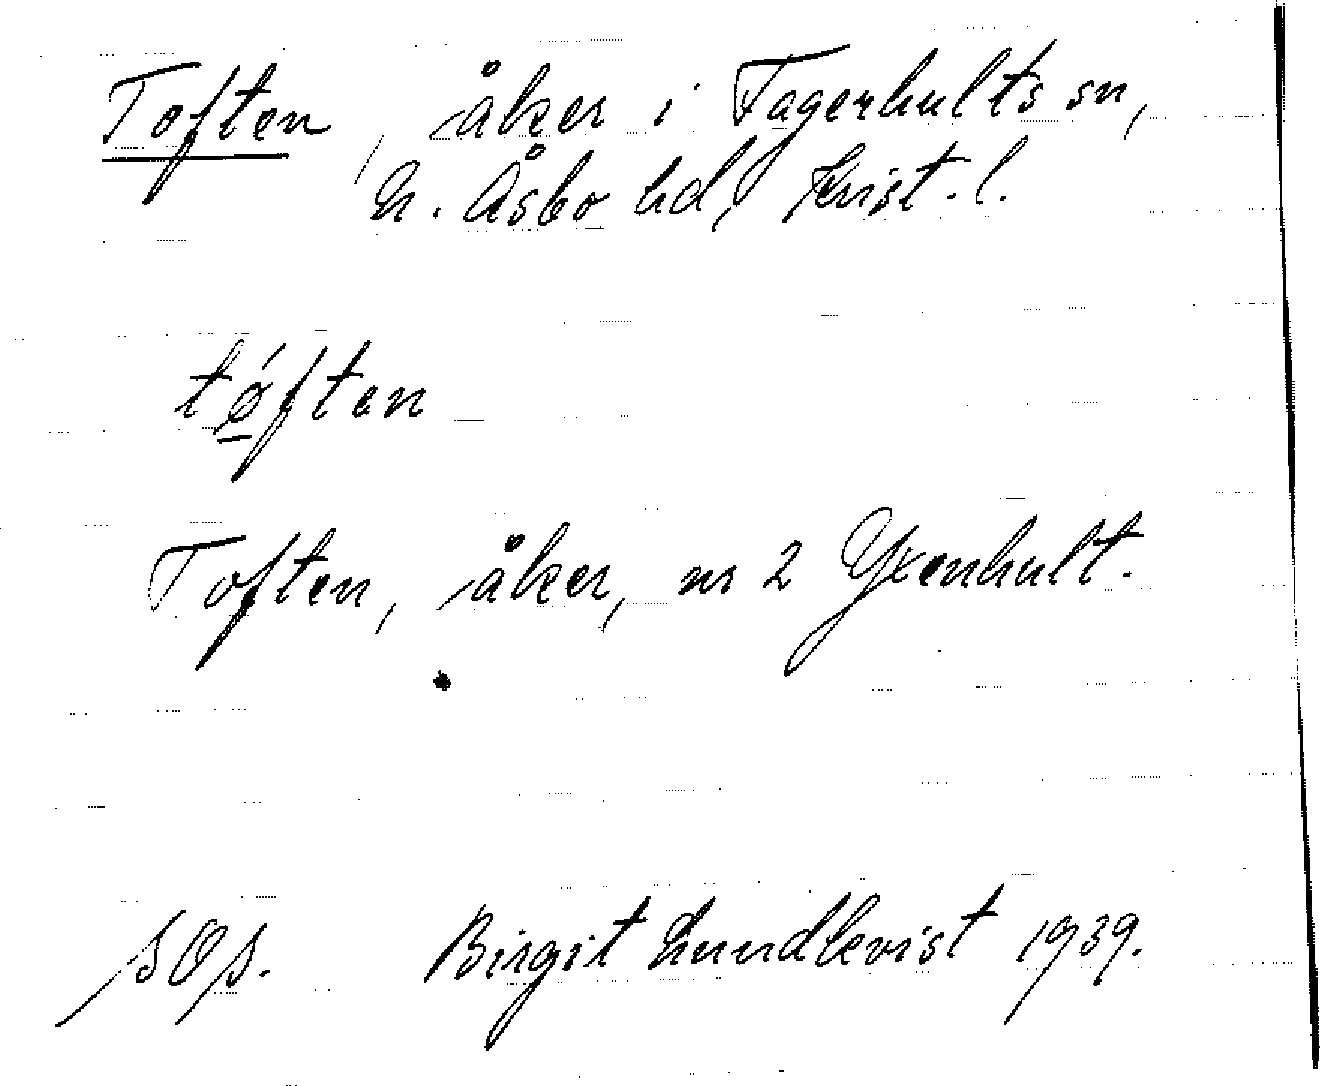 Toften, åker i Fagerhults sn,
N. Åsbo hd, Krist. l.
tǿften
Toften, åker, nr 2 Yxenhult.
SOS. Birgit Lundkvist 1939.